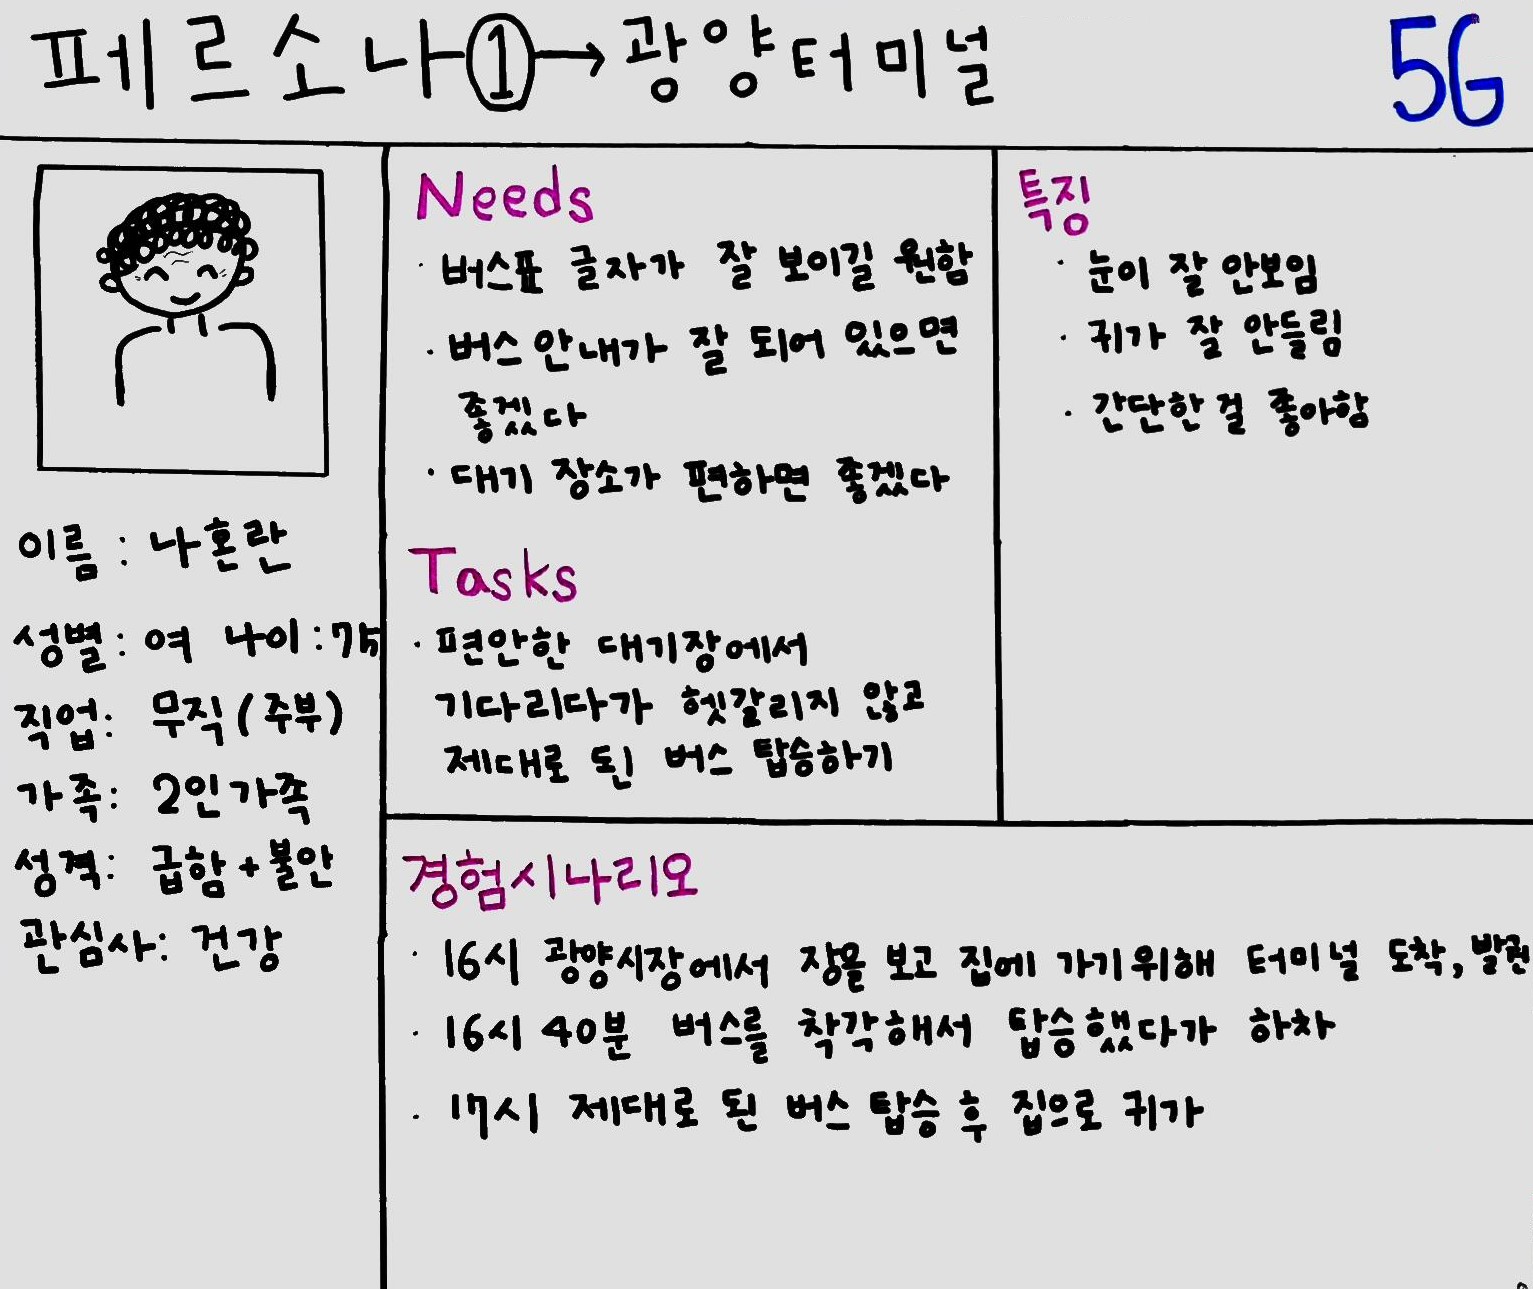 페르소나①→광양터미널
5G
이름 : 나혼란
성별 : 여 나이 : 75
직업: 무직(주부)
가족: 2인가족
성격: 급함+불안
관심사: 건강
Needs
· 버스표 글자가 잘 보이길 원함
· 버스안내가 잘 되어 있으면
좋겠다
· 대기 장소가 편하면 좋겠다
Tasks
· 편안한 대기장에서
기다리다가 헷갈리지 않고
제대로 된 버스 탑승하기
특징
· 눈이 잘 안보임
· 귀가 잘 안들림
· 간단한걸 좋아함
경험시나리오
· 16시 광양시장에서 장을 보고 집에 가기위해 터미널 도착, 발권
· 16시 40분 버스를 착각해서 탑승했다가 하차
· 17시 제대로 된 버스 탑승 후 집으로 귀가